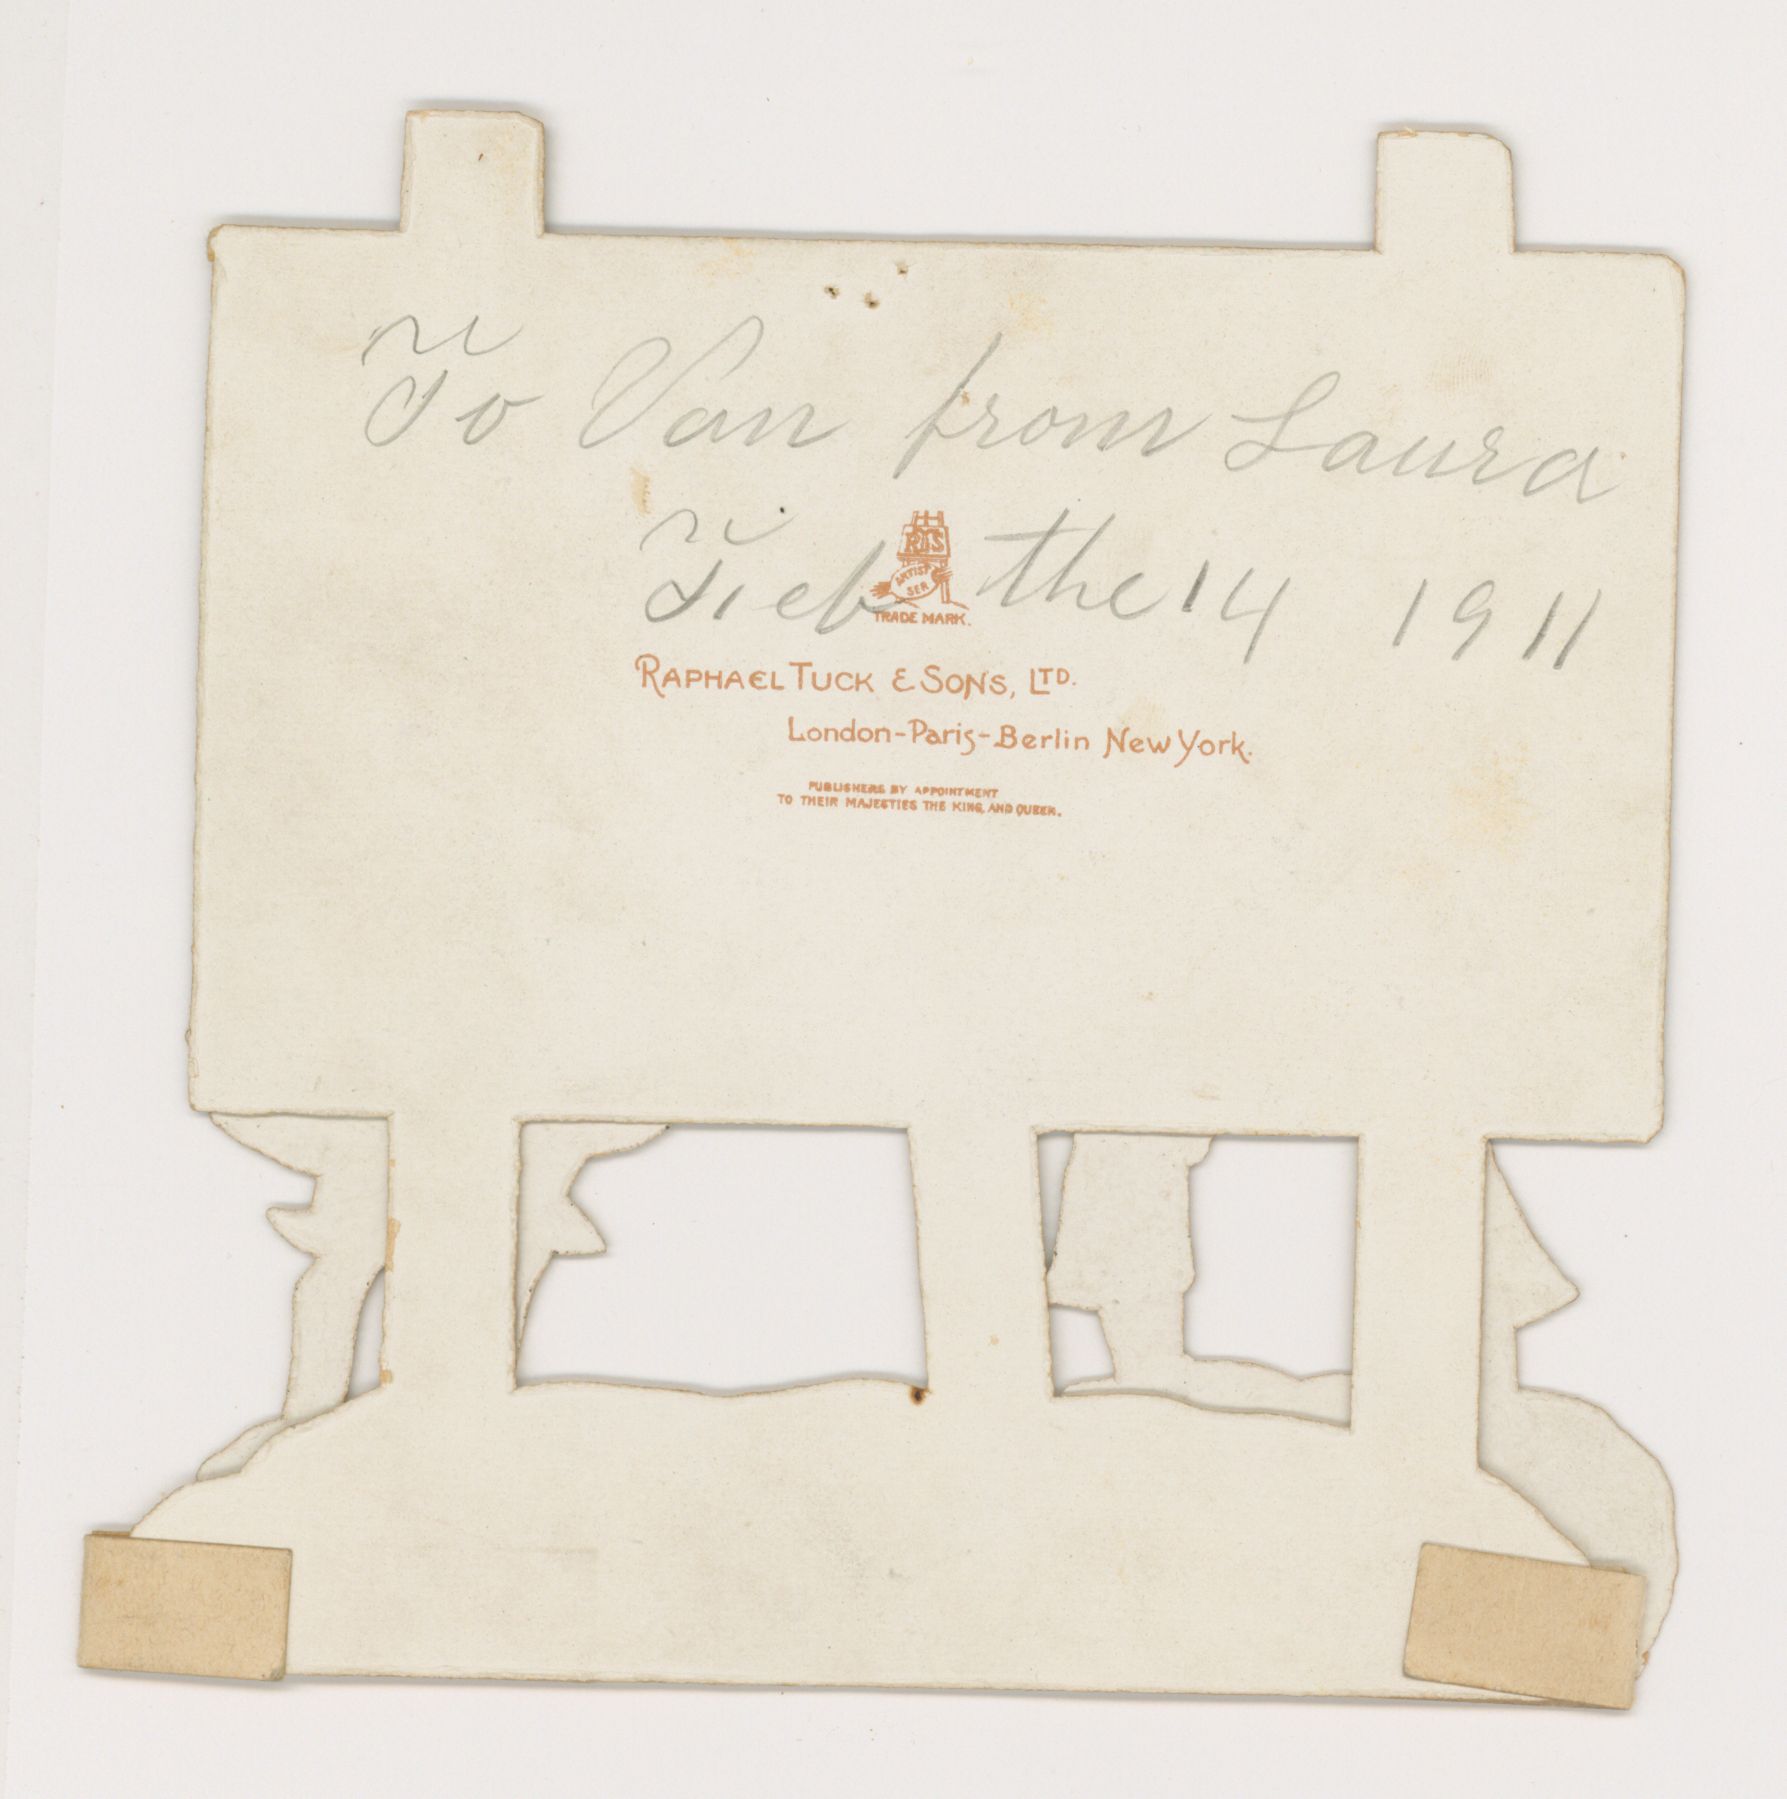 To Van from Laura
Feb the 14 1911
RTS
ARTIST
SER
TRADE MARK.
RAPHAEL TUCK & SONS, LTD.
London-Paris-Berlin New York.
PUBLISHERS BY APPOINTMENT
TO THEIR MAJESTIES THE KING AND QUEEN.